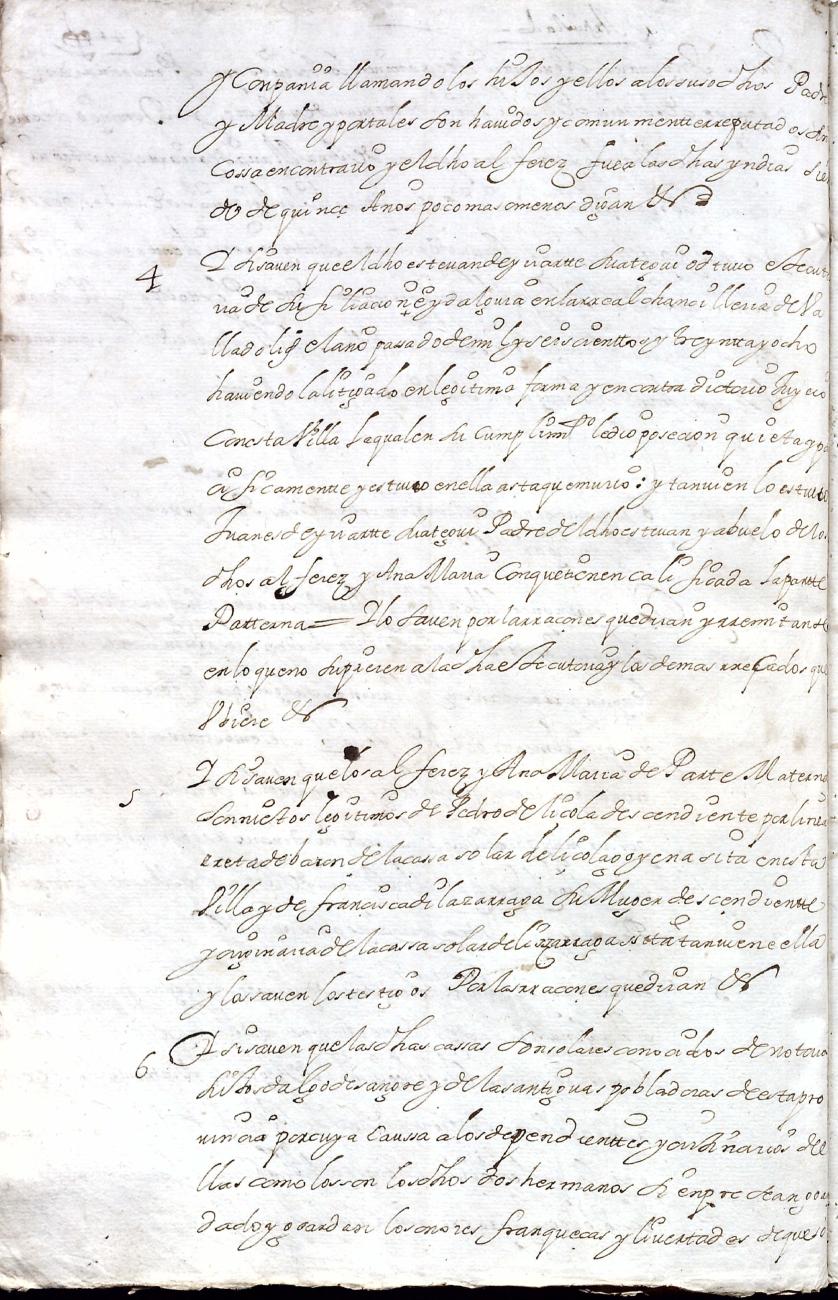 y Conpania llamandolos hiJos y ellos alos susodhos Padre
y Madre y portales son hauidos y comun mentte rreputados sin
Cossa en contrario y el dho alferez fue a las dhas yndias sien
do de quince Años poco mas o menos diran &
4 Y si sauen que el dho esteuan de yriartte obtuuo executo
ria de su filiacion e ydalguia en la rreal chancilleria de Va
lladolid el año passado de mil y seiscienttos y treyntta y ocho
hauiendo la litigado en legitima forma y en contradictorio Juycio
Con esta Villa la qual en su cumplimto le dio posecion quieta y pa
cificamente y estuuo en ella asta que murio: y tanuien lo estubo
Juanes de yriartte Padre del dho esteuan y abuelo de los
dhos alferez y Ana Maria Con que tienen calificada la partte
Patterna = Y lo sauen por las rracones que diran y rremitanse
en lo que no supieren a la dha executoria y los demas rrecados que
Vbiere &
5 Y si sauen que los alferez y Ana Maria de Parte Materna
son nietos legitimos de Pedro de descendiente por linea
rreta de baron de la cassa solar de sita en esta
Villa y de francisca de lazarraga su Muger descendientte
y originaria de la cassa solar de lazarraga sita tanuien en ella
y lo sauen los testigos Por las rracones que diran &
6 Y si sauen que las dhas cassas son solares conocidos de notorios
hiJos dalgo de sangre y de las antiguas pobladoras de esta pro
uincia por cuya Caussa a los dependienttes y oriJinarios de e
llas como lo son los dhos dos hermanos sienpre se an guar
dado y guardan los onores franquecas y liuertades de que